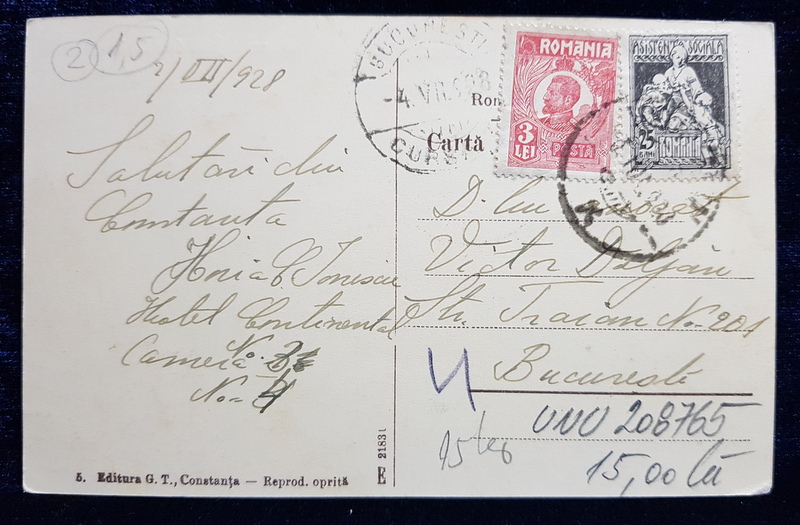 2
1,5
2/VII/928
Salutări din
Constanta
Horia C. Ionescu
Hotel Continental
Camera No.
No. 4
5. Editura G. T., Constanța — Reprod. oprită
E 21831
BUCUREȘTI
4.VII.928
CURS
Rom
Carta
ROMANIA
3 LEI
POSTA
ASISTENȚA SOCIALĂ
25 BANI
ROMANIA
D. lui avocat
Victor Dolján
Str. Traian No. 201
București
UNU 208765
15 lei
15,00 lei